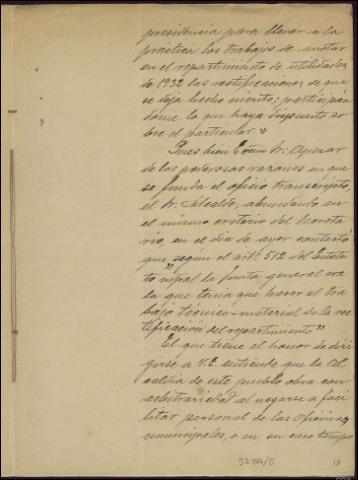 presidencia para llevar a la
práctica los trabajos de anotar
en el repartimiento de utilidades
de 1932 las rectificaciones de que
se deja hecho mérito; participán
dome lo que haya dispuesto so
bre el particular.»
Pues bien Excmo Sr.: Apesar
de las poderosas razones en que
se funda el oficio transcripto,
el Sr. Alcalde, abundando en
el mismo criterio del Secreta
rio, en el dia de ayer contestó
que según el artº 512 del Estatu
to mpal la junta general era
la que tenia que hacer el tra
bajo técnico-material de la rec
tificación del repartimiento"
El que tiene el honor de diri
girse a V.E. entiende que la Al
caldia de este pueblo obra con
arbitrariedad al negarse a faci
litar personal de las oficinas
municipales, o en su caso tempo
3274/15
13